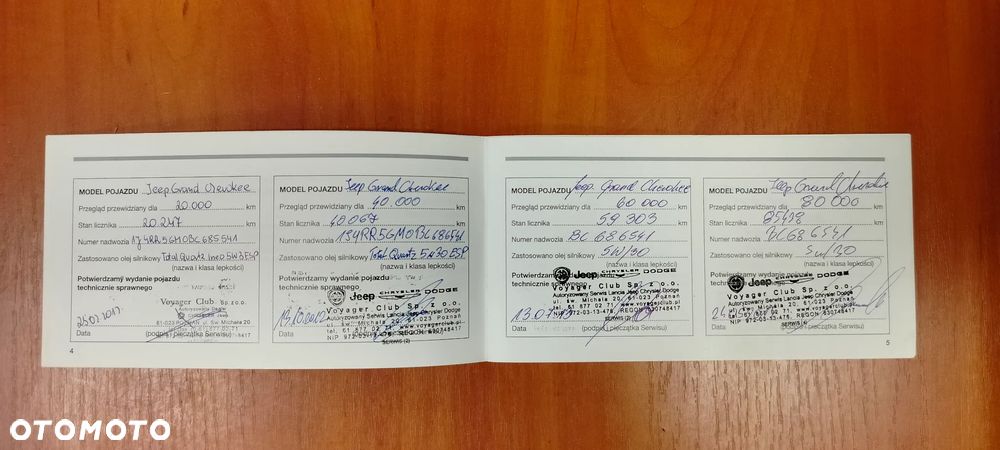 MODEL POJAZDU Jeep Grand Cherokee
Przegląd przewidziany dla 20.000 km
Stan licznika 20.247 km
Numer nadwozia 1J4RR5GM0BC685541
Zastosowano olej silnikowy Total Quartz
(nazwa i klasa lepkości)
Potwierdzamy wydanie pojazdu
technicznie sprawnego
Voyager Club Sp. z o.o.
Data (podpis i pieczątka Serwisu)
4
MODEL POJAZDU Jeep Grand Cherokee
Przegląd przewidziany dla 40.000 km
Stan licznika 40.067 km
Numer nadwozia
Zastosowano olej silnikowy Total Quartz 5W30 ESP
(nazwa i klasa lepkości)
Potwierdzamy wydanie pojazdu
technicznie sprawnego
Jeep CHRYSLER DODGE
Voyager Club Sp. z o.o.
Autoryzowany Serwis Lancia Jeep Chrysler Dodge
św. Michała 20, 61-023 Poznań
tel. 61 877 02 71, www.voyagerclub.pl
SERWIS (2)
Data
MODEL POJAZDU Jeep Grand Cherokee
Przegląd przewidziany dla 60 000 km
Stan licznika 59 303 km
Numer nadwozia BC 686541
Zastosowano olej silnikowy 5W/30
(nazwa i klasa lepkości)
Potwierdzamy wydanie pojazdu
technicznie sprawnego
Jeep CHRYSLER DODGE
Voyager Club Sp. z o.o.
Autoryzowany Serwis Lancia Jeep Chrysler Dodge
św. Michała 20, 61-023 Poznań
NIP 972-03-13-476, REGON 630748417
Data (podpis i pieczątka Serwisu)
MODEL POJAZDU Jeep Grand Cherokee
Przegląd przewidziany dla 80 000 km
Stan licznika 85428 km
Numer nadwozia BC686541
Zastosowano olej silnikowy 5W/30
(nazwa i klasa lepkości)
Potwierdzamy wydanie pojazdu
technicznie sprawnego
Jeep CHRYSLER DODGE
Voyager Club Sp. z o.o.
Autoryzowany Serwis Lancia Jeep Chrysler Dodge
św. Michała 20, 61-023 Poznań
NIP 972-03-13-476, REGON 630748417
SERWIS
Data (podpis i pieczątka Serwisu)
5
OTOMOTO